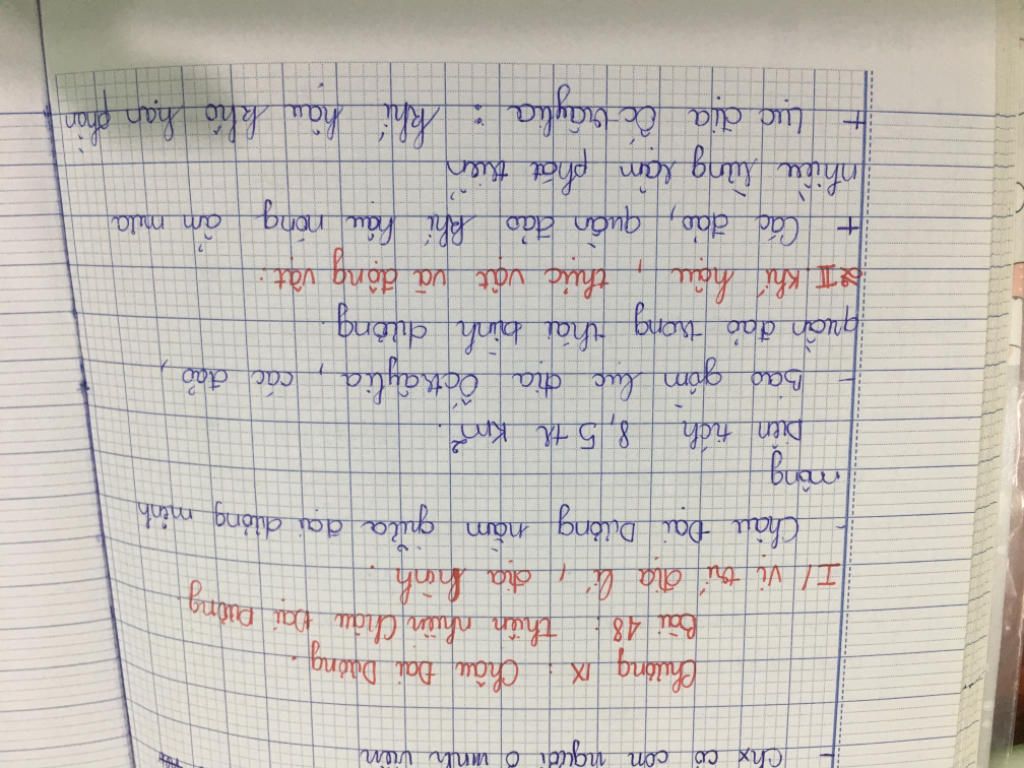 - Chx có con người ở vĩnh viễn
Chương IX : Châu Đại Dương.
Bài 48 : thiên nhiên Châu Đại Dương
I/ vị trí địa lí, địa hình.
- Châu Đại Dương nằm giữa đại dương mênh
mông
Diện tích 8,5 tr km².
- Bao gồm lục địa Ôxtrâylia, các đảo,
quần đảo trong thái bình dương.
II Khí hậu, thực vật và động vật:
+ Các đảo, quần đảo khí hậu nóng ẩm mưa
nhiều rừng rậm phát triển
+ Lục địa Ôc trâylia : khí hậu khô hạn phần